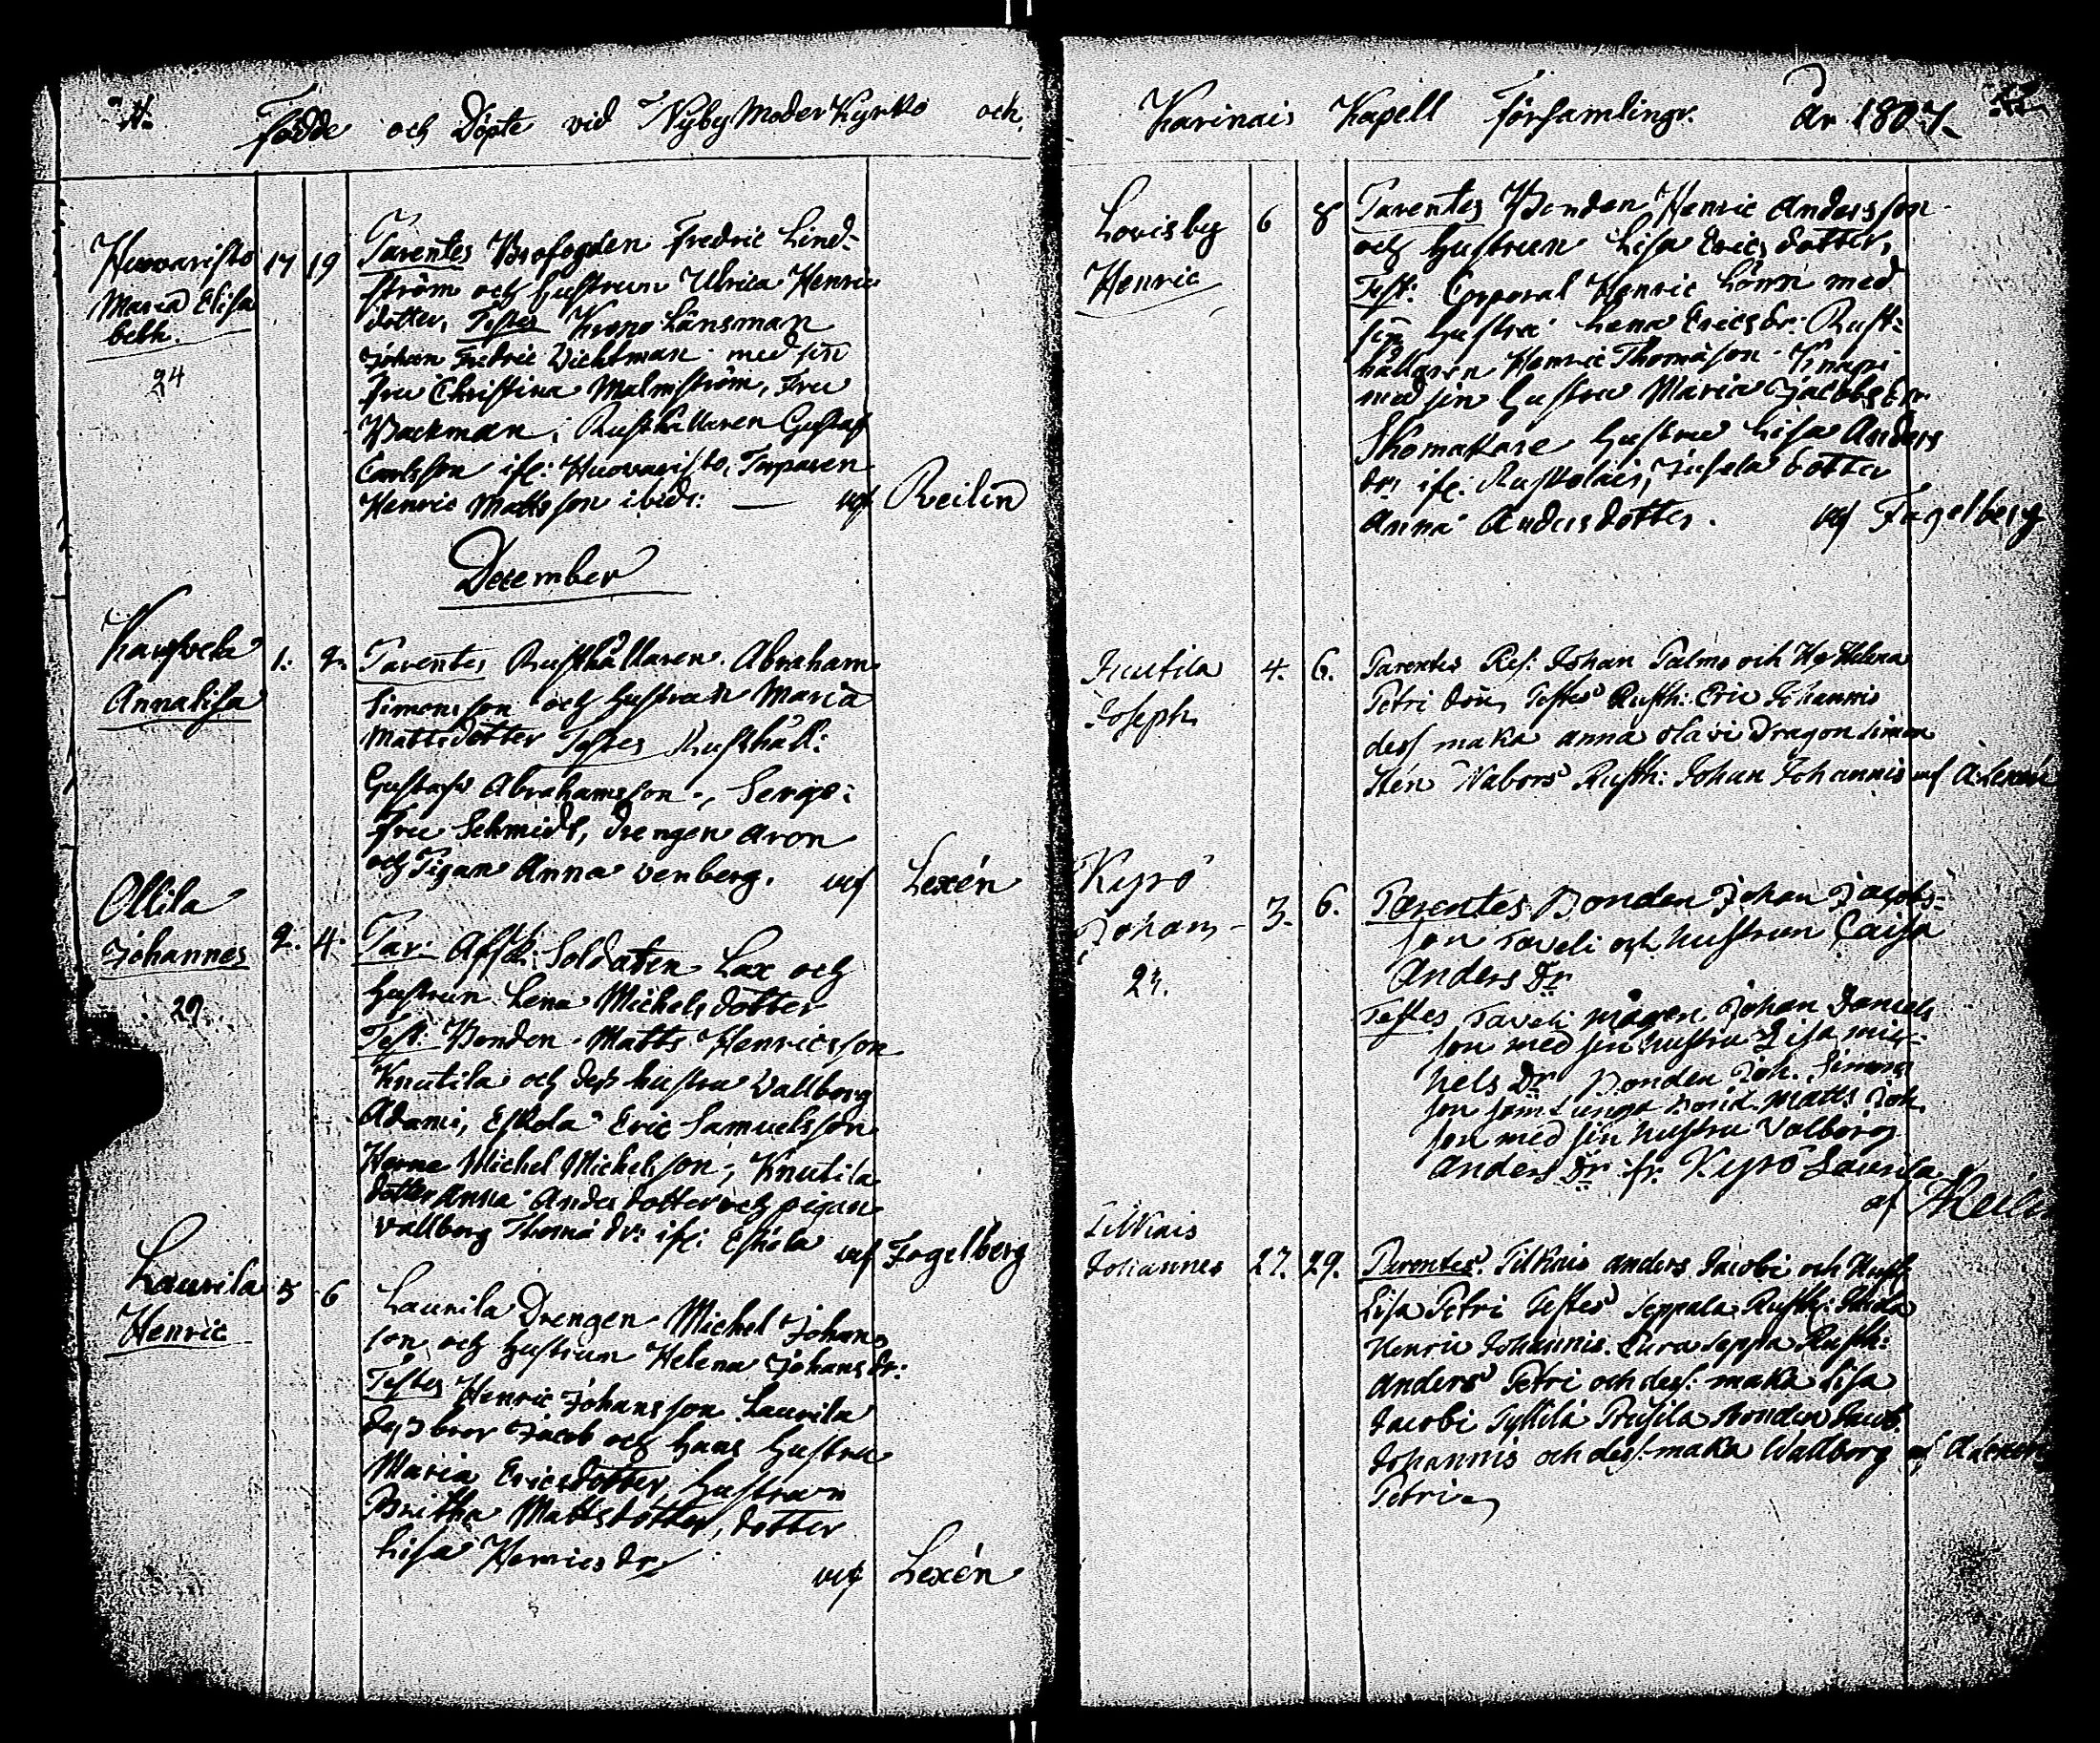 Födde och Döpte vid Nyby Moder Kyrko och
Huovaristo 17 19 Parentes Brofogden Fredric Lind-
Maria Elisa
beth.
24
ström och Hustrun Ulrica Henrics
dotter, Testes Krono Länsman
Johan Fredric Wichtman med sin
Fru Christina Malmström, Fru
Backman, Rusthållaren Gustaf
Carlsson ifr: Huovaristo, Torparen
Henric Mattsson ibid: Reilin
December
Annalisa
1. 2. Parentes Rusthållaren Abraham
Simonsson och Hustrun Maria
Mattsdotter Testes Rusthåll:
Gustaf Abrahamsson, Sergs:
Fru Schmidt, Drengen Aron
och Pigan Anna Venberg. Lexén
Ollila
Johannes 2. 4. Par: Afsk: Soldaten Lax och
29.
Hustrun Lena Michelsdotter
Test: Bonden Matts Henricsson
Knutila och dess hustru Vallborg
Adami, Eskola Eric Samuelsson
Michel Michelsson, Knutila
dotter Anna Andersdotter och pigan
Vallborg Thomædr: ifr: Eskola Fogelberg
Laurila 5 6 Laurila Drengen Michel Johans
Henric
son och Hustrun Helena Johansdr:
Testes Henric Johansson Laurila
dess bror Jacob och hans Hustru
Maria Ericsdotter, Hustrun
Britha Mattsdotter, dotter
Lisa Henricsdr Lexén
Karinais Kapell Församlingr. År 1807.
Lovisby 6 8 Parentes Bonden Henric Andersson
Henric
och Hustrun Lisa Ericsdotter,
Test: Corporal Henric Lönn med
sin Hustru Lena Ericsdr: Rust-
hållaren Henric Thomasson Knapi
med sin Hustru Maria Jacobsdr.
Skomakare Hustru Lisa Anders
dr: ifr. Jusela dotter
Anna Andersdotter. Fogelberg
Knutila 4. 6. Parentes Res: Johan Palmo och Hu Helena
Joseph
Petri Testes Rusth: Eric Johannis
dess maka Anna Olavi Dragon Simon
Sten Nabors Rusth: Johan Johannis af A. Lexén
Kyrö
Johan 3. 6. Parentes Bonden Johan Jacobs-
son Taveli och hustrun Caisa
Anders Dr
Testes Taveli mågen Johan Daniels
son med sin hustru Lisa mic-
hels Dr Bonden Joh. Simons
son Matts Joh.
son med sin hustru Valborg
Anders Dr ifr. Kyrö Laurila
af Reilin
Tilkais
Johannes 27. 29. Parentes. Tilkais Anders Jacobi och Hust
Lisa Petri Testes Seppala Rusth:
Henric Johannis. Eura Seppa Rusth:
Anders Petri och dess: maka Lisa
Jacobi Tyllilä Prusila Bonden Jacob
Johannis och dess: maka Wallborg af A Lexén
Petri